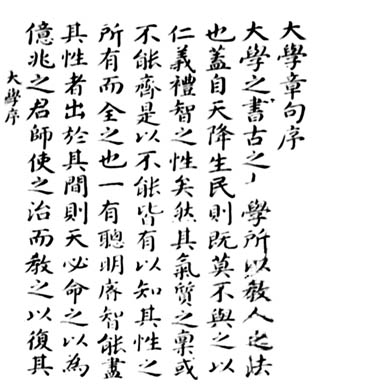 大學章句序
大學之書古之學所以教人之法
也蓋自天降生民則既莫不與之以
仁義禮智之性矣然其氣質之稟或
不能齊是以不能皆有以知其性之
所有而全之也一有聰明睿智能盡
其性者出於其間則天必命之以為
億兆之君師使之治而教之以復其
大學序